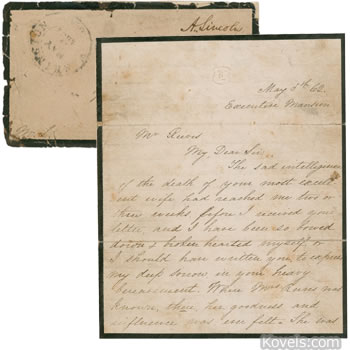 A. Lincoln
May 5th 62.
Executive Mansion
Mr
My Dear Sir
The sad intelligence
of the death of your most excell
ent wife had reached me two or
three weeks before I received your
letter, and I have been so bowed
down & broken hearted myself, or
I should have written you to express
my deep sorrow in your heavy
bereavement. When Mrs was
known, there, her goodness, and
influence was ever felt. She was
© Kovels.com